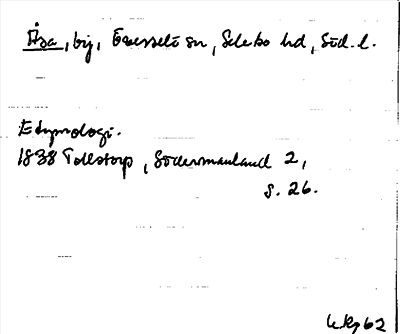 Åsa, by, Överselö sn, Selebo hd, Söd. l.
Etymologi.
1838 Tollstorp, Södermanland 2,
s. 26.
62